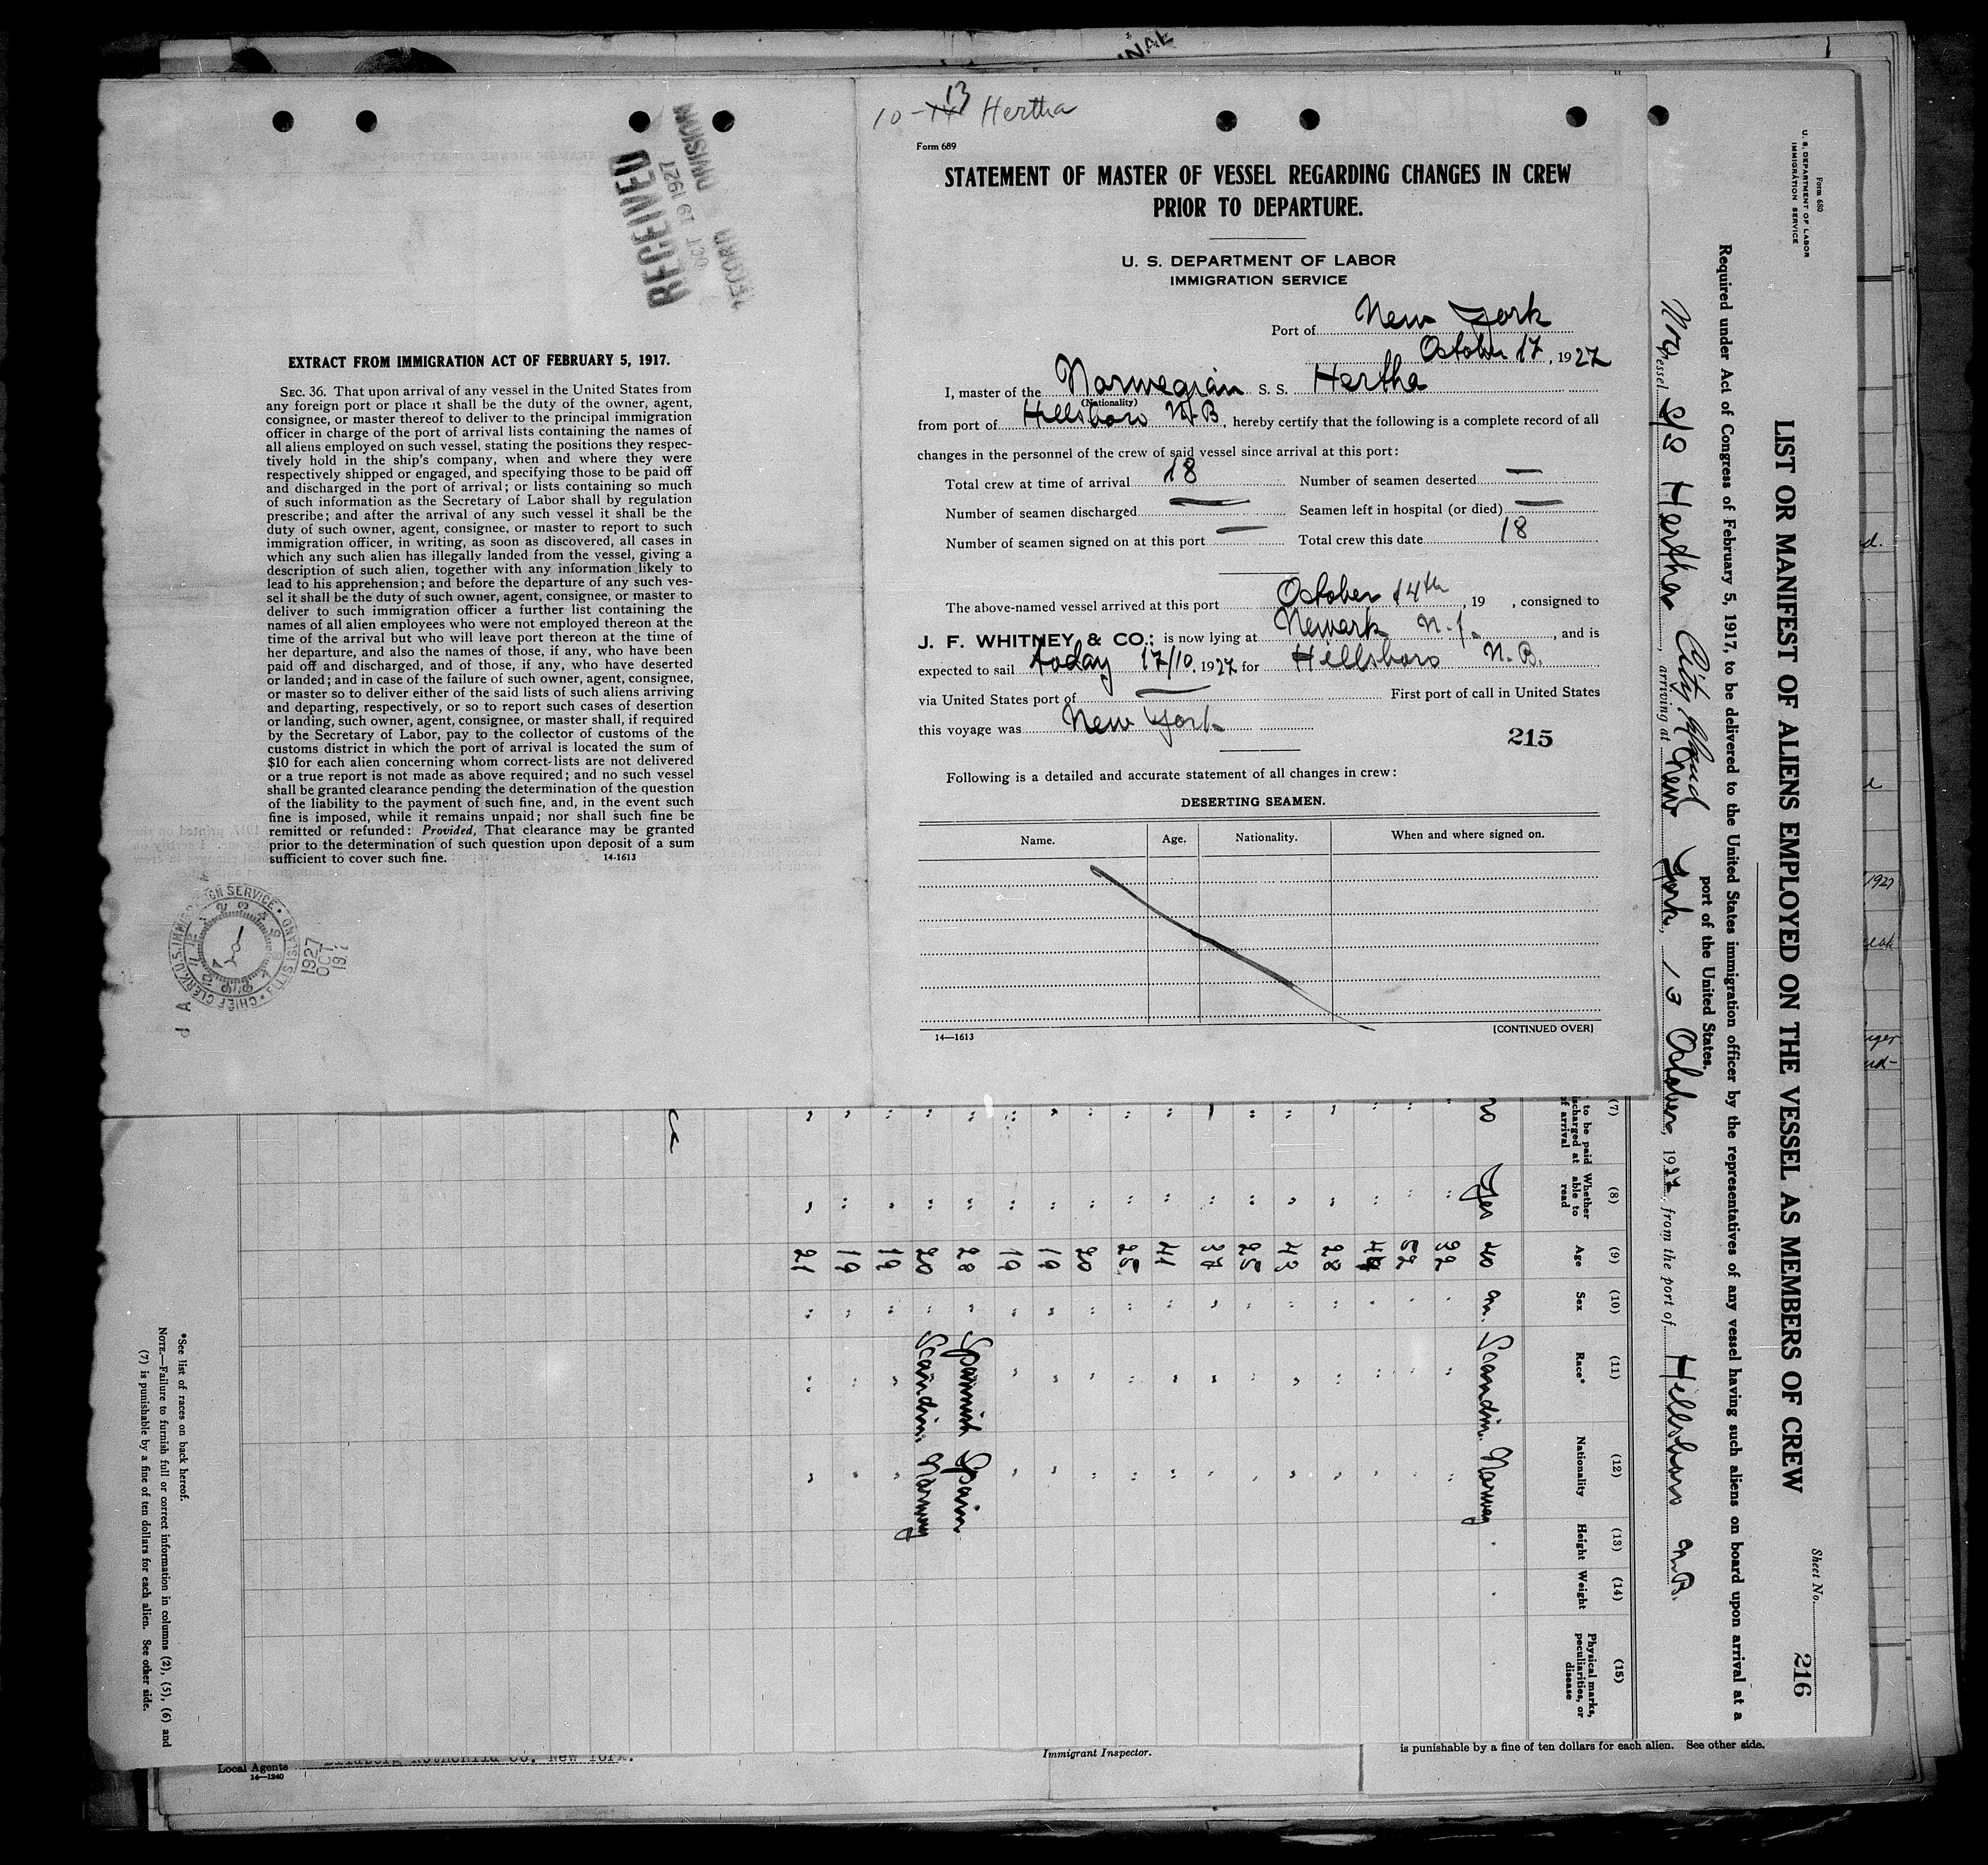 INAL
10-13 Hertha
Form 689
STATEMENT OF MASTER OF VESSEL REGARDING CHANGES IN CREW
PRIOR TO DEPARTURE.
U. S. DEPARTMENT OF LABOR
IMMIGRATION SERVICE
Port of New York
October 17, 1927
I, master of the Norwegian S. S. Hertha
(Nationality)
from port of Hillsboro N.B., hereby certify that the following is a complete record of all
changes in the personnel of the crew of said vessel since arrival at this port:
Total crew at time of arrival 18 Number of seamen deserted —
Number of seamen discharged — Seamen left in hospital (or died) —
Number of seamen signed on at this port — Total crew this date 18
The above-named vessel arrived at this port October 14th, 19 , consigned to
J. F. WHITNEY & CO.; is now lying at Newark N.J., and is
expected to sail today 17/10. 1927 for Hillsboro N.B.
via United States port of — First port of call in United States
this voyage was New York
215
Following is a detailed and accurate statement of all changes in crew:
DESERTING SEAMEN.
Name. Age. Nationality. When and where signed on.
14—1613 [CONTINUED OVER]
RECEIVED
OCT 19 1927
RECORD DIVISION
EXTRACT FROM IMMIGRATION ACT OF FEBRUARY 5, 1917.
SEC. 36. That upon arrival of any vessel in the United States from
any foreign port or place it shall be the duty of the owner, agent,
consignee, or master thereof to deliver to the principal immigration
officer in charge of the port of arrival lists containing the names of
all aliens employed on such vessel, stating the positions they respec-
tively hold in the ship's company, when and where they were
respectively shipped or engaged, and specifying those to be paid off
and discharged in the port of arrival; or lists containing so much
of such information as the Secretary of Labor shall by regulation
prescribe; and after the arrival of any such vessel it shall be the
duty of such owner, agent, consignee, or master to report to such
immigration officer, in writing, as soon as discovered, all cases in
which any such alien has illegally landed from the vessel, giving a
description of such alien, together with any information likely to
lead to his apprehension; and before the departure of any such ves-
sel it shall be the duty of such owner, agent, consignee, or master to
deliver to such immigration officer a further list containing the
names of all alien employees who were not employed thereon at the
time of the arrival but who will leave port thereon at the time of
her departure, and also the names of those, if any, who have been
paid off and discharged, and of those, if any, who have deserted
or landed; and in case of the failure of such owner, agent, consignee,
or master so to deliver either of the said lists of such aliens arriving
and departing, respectively, or so to report such cases of desertion
or landing, such owner, agent, consignee, or master shall, if required
by the Secretary of Labor, pay to the collector of customs of the
customs district in which the port of arrival is located the sum of
$10 for each alien concerning whom correct lists are not delivered
or a true report is not made as above required; and no such vessel
shall be granted clearance pending the determination of the question
of the liability to the payment of such fine, and, in the event such
fine is imposed, while it remains unpaid; nor shall such fine be
remitted or refunded: Provided, That clearance may be granted
prior to the determination of such question upon deposit of a sum
sufficient to cover such fine. 14-1613
CHIEF CLERK, U.S. IMMIGRATION SERVICE • ELLIS ISLAND
1927
OCT
Form 680
U. S. DEPARTMENT OF LABOR
IMMIGRATION SERVICE
Sheet No.
216
LIST OR MANIFEST OF ALIENS EMPLOYED ON THE VESSEL AS MEMBERS OF CREW
Required under Act of Congress of February 5, 1917, to be delivered to the United States immigration officer by the representatives of any vessel having such aliens on board upon arrival at a
port of the United States.
Vessel S/S Hertha, arriving at New York, 13 October, 1927, from the port of Hillsboro N.B.
(7) (8) (9) (10) (11) (12) (13) (14) (15)
to be paid
Whether able to read
Age
Sex
Race*
Nationality
Height
Weight
Physical marks, peculiarities, or disease
no Yes 40 m. Scandin. Norway
" " 32 " " "
" " 52 " " "
" " 44 " " "
" " 28 " " "
" " 43 " " "
" " 25 " " "
" " 37 " " "
" " 41 " " "
" " 25 " " "
" " 20 " " "
" " 19 " " "
" " 19 " " "
" " 28 " Spanish Spain
" " 20 " Scandin. Norway
" " 19 " " "
" " 19 " " "
" " 21 " " "
*See list of races on back hereof.
NOTE.—Failure to furnish full or correct information in columns (2), (5), (6) and
(7) is punishable by a fine of ten dollars for each alien. See other side.
Local Agents
14—1240
Immigrant Inspector.
is punishable by a fine of ten dollars for each alien. See other side.